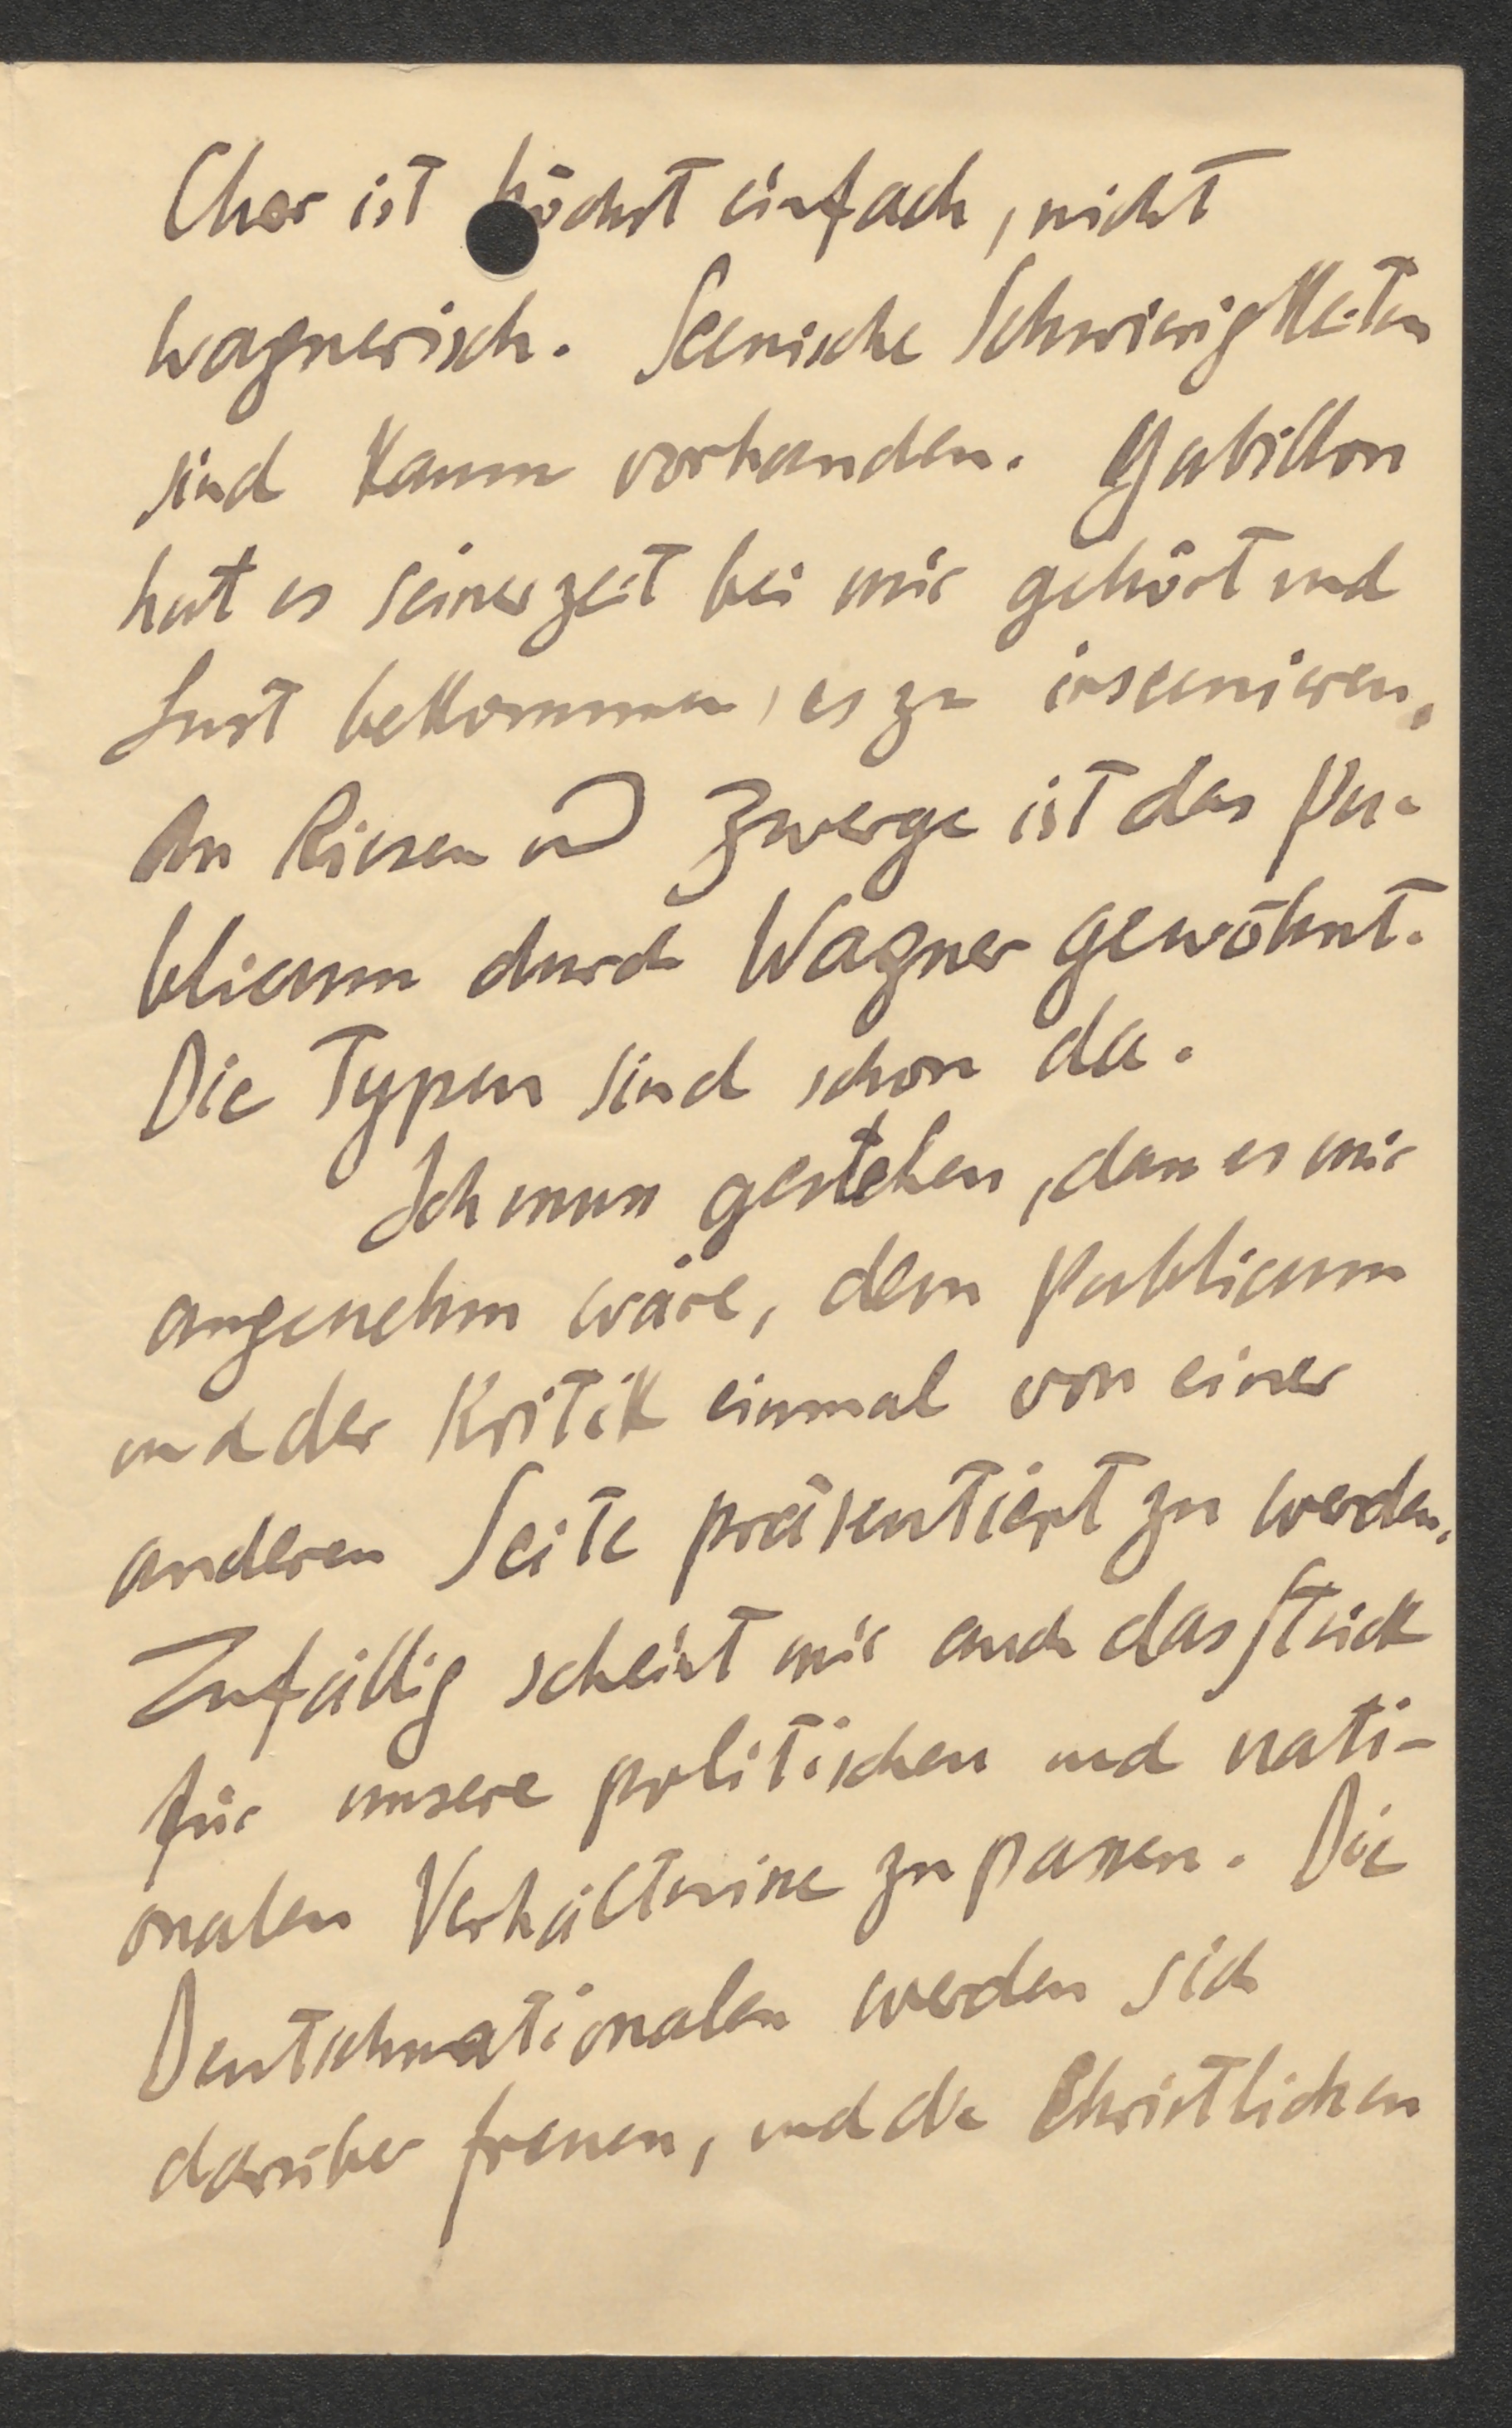 Chor ist höchst einfach, nicht
wagnerisch. Scenische Schwierigkeiten
sind kaum vorhanden. Gabillon
hat es seinerzeit bei mir gehört und
Lust bekommen, es zu insceniren.
An Riesen u Zwerge ist das Pu-
blicum durch Wagner gewöhnt.
Die Typen sind schon da.
Ich muss gestehen, dass es mir
angenehm wäre, dem Publicum
und der Kritik einmal von einer
anderen Seite präsentiert zu werden.
Zufällig scheint mir auch das Stück
für unsere politischen und nati-
onalen Verhältnisse zu passen. Die
Deutschnationalen werden sich
darüber freuen, und die Christlichen